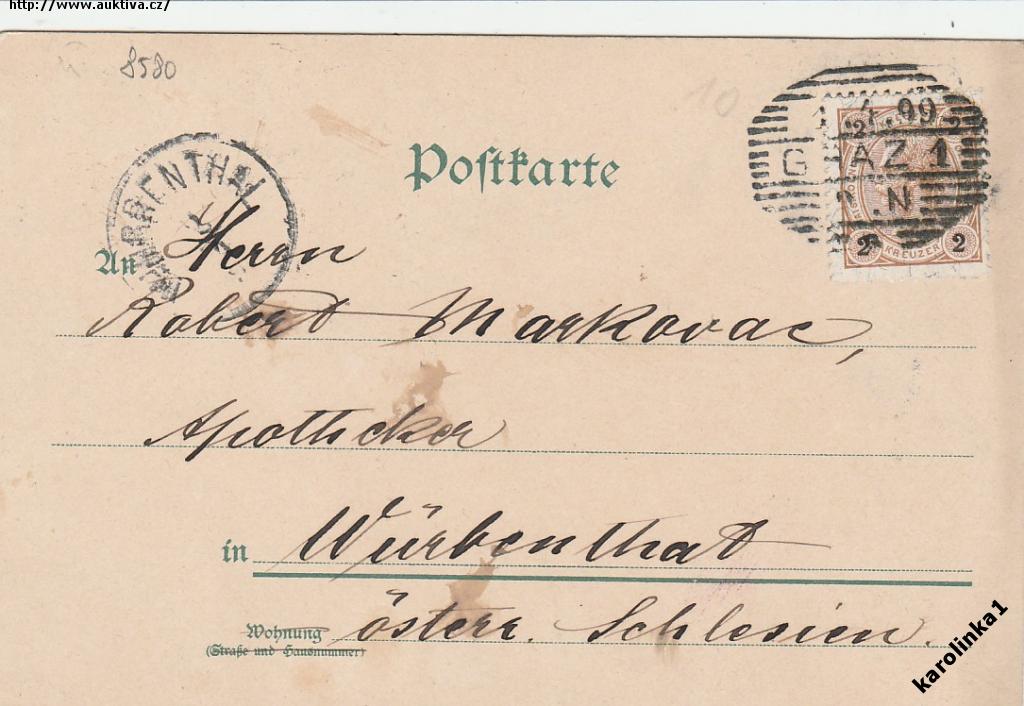 http://www.auktiva.cz/
8580
10
1.4.99
GRAZ 1
N
2 2
2 KREUZER 2
Postkarte
WÜRBENTHAL
An Herrn
Robert Markovac,
Apotheker
in Würbenthal
Wohnung österr. Schlesien.
(Straße und Hausnummer)
karolinka1